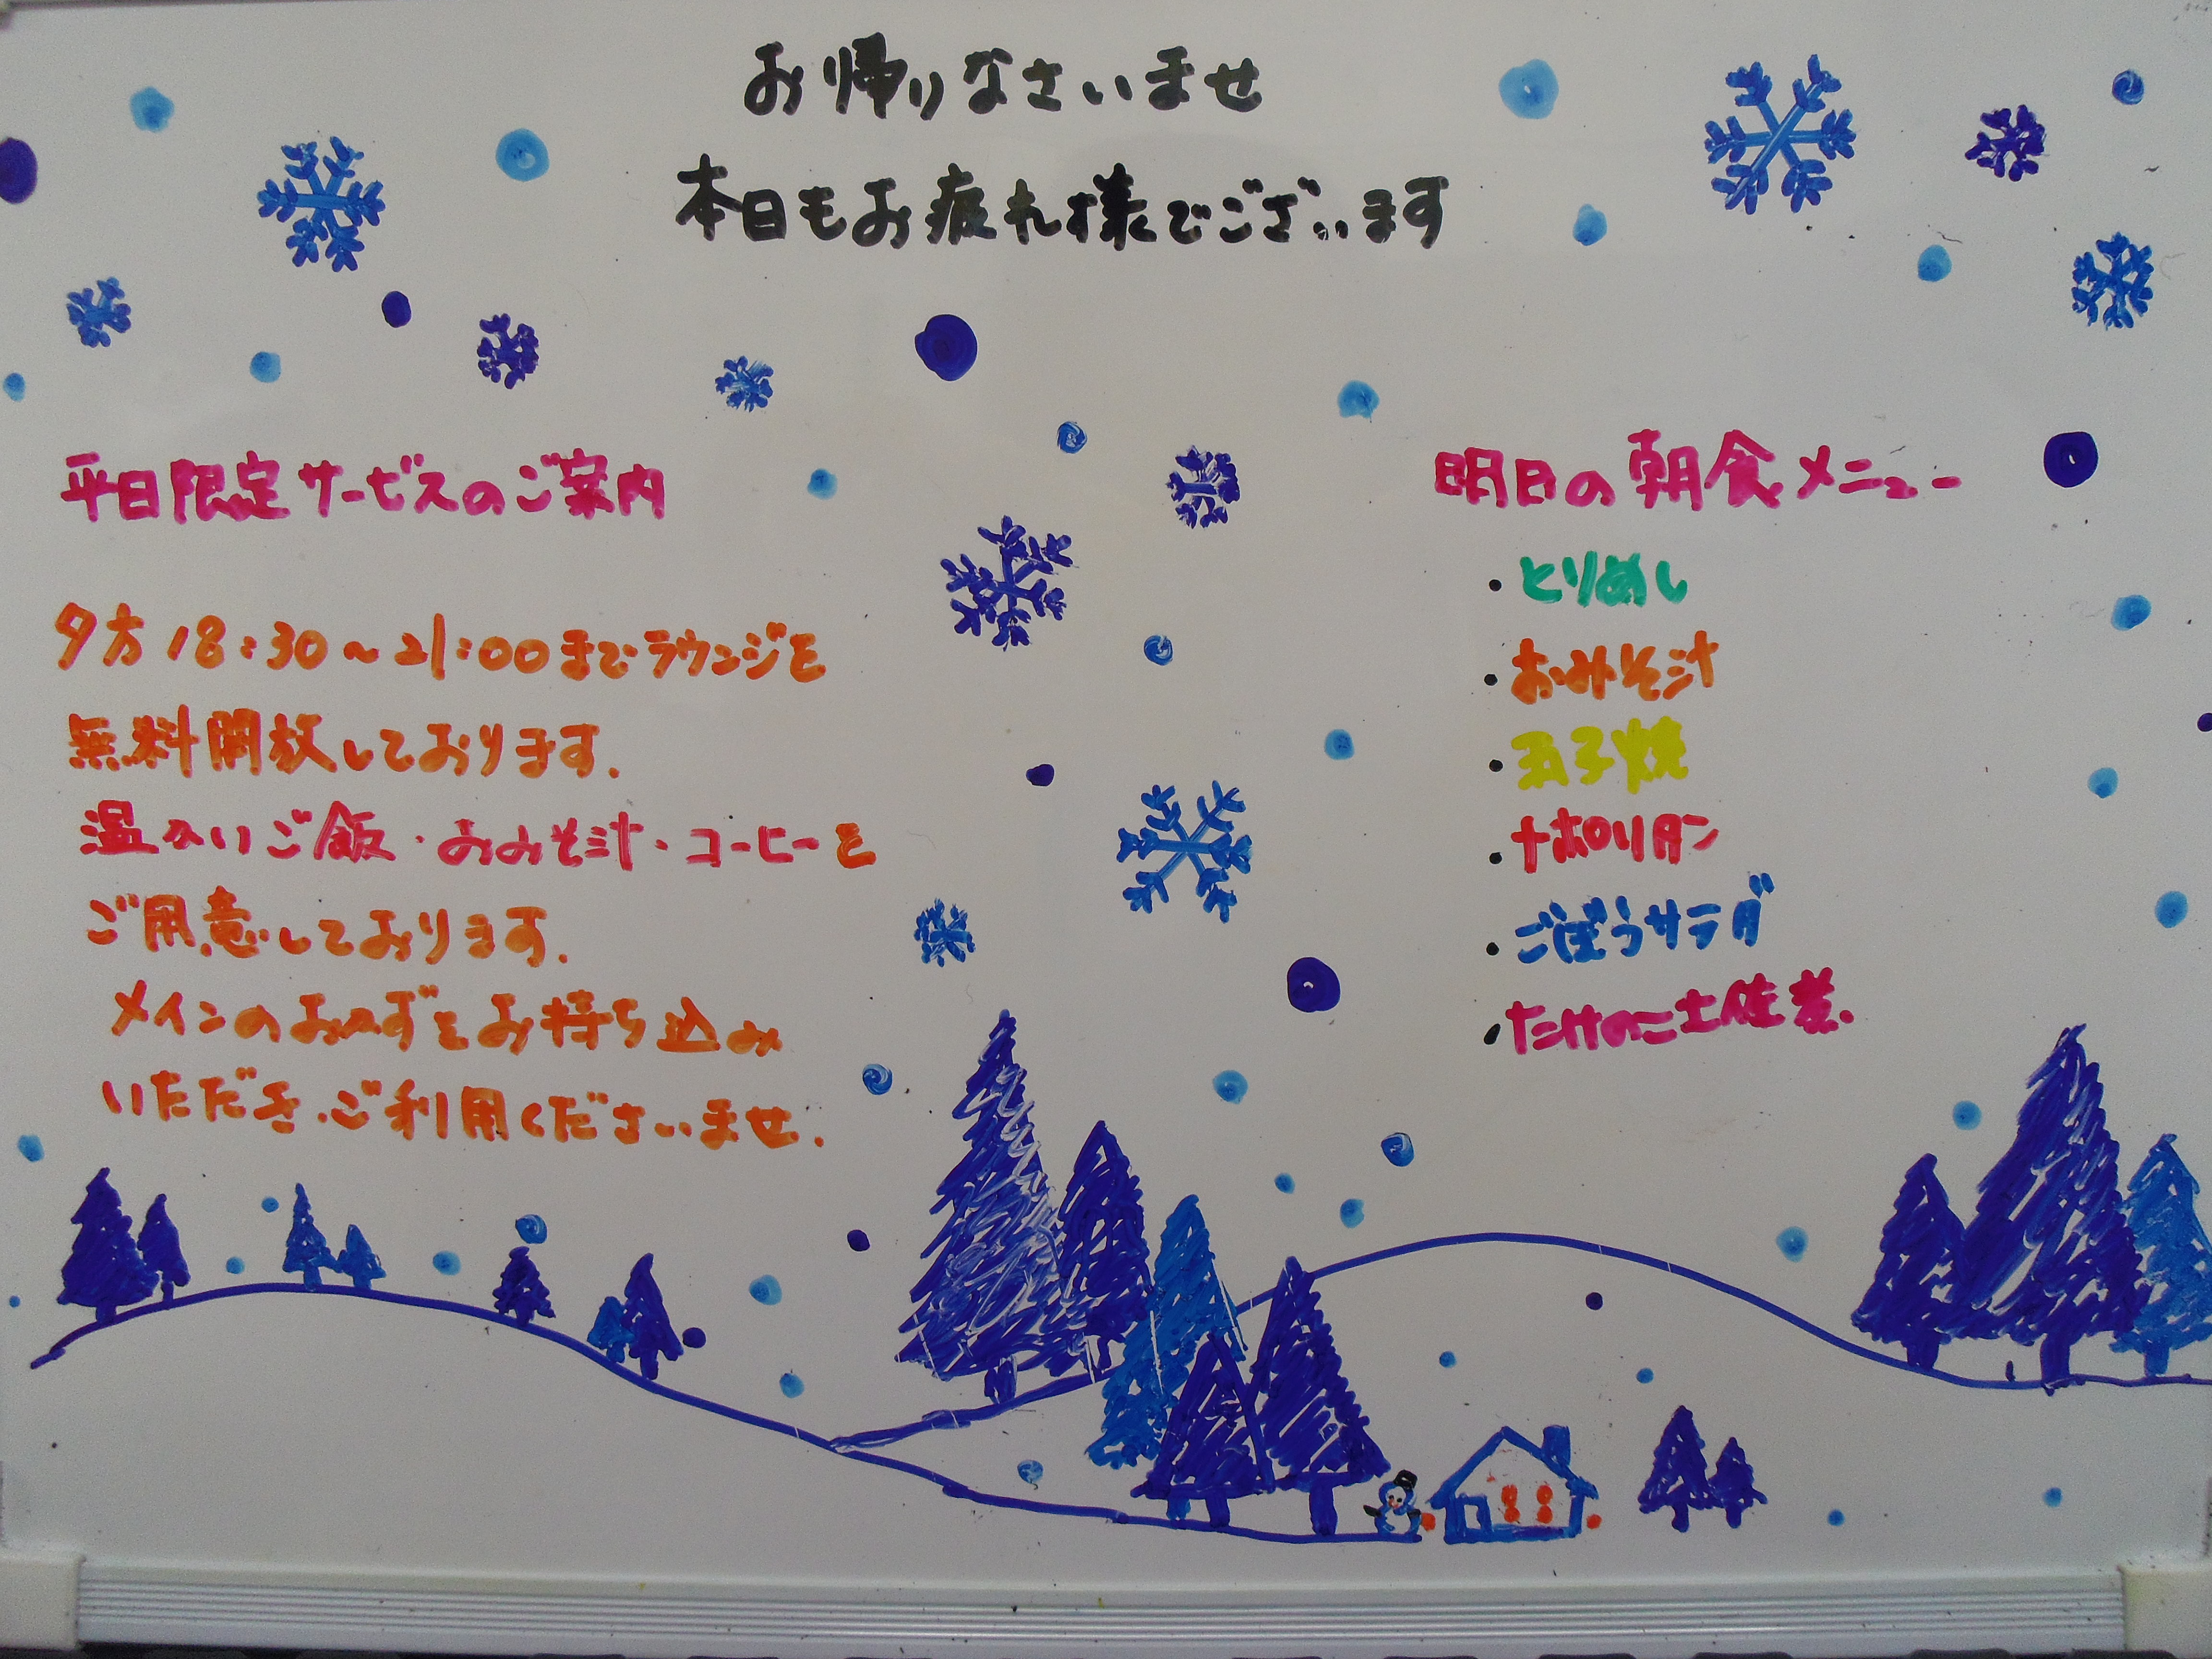 お帰りなさいませ
本日もお疲れ様でございます
平日限定サービスのご案内
夕方18:30~21:00までラウンジを
無料開放しております.
温かいご飯・おみそ汁・コーヒーを
ご用意しております.
メインのおかずをお持ち込み
いただき、ご利用くださいませ.
明日の朝食メニュー
・とりめし
・おみそ汁
・玉子焼
・ナポリタン
・ごぼうサラダ
・たけのこ土佐煮.